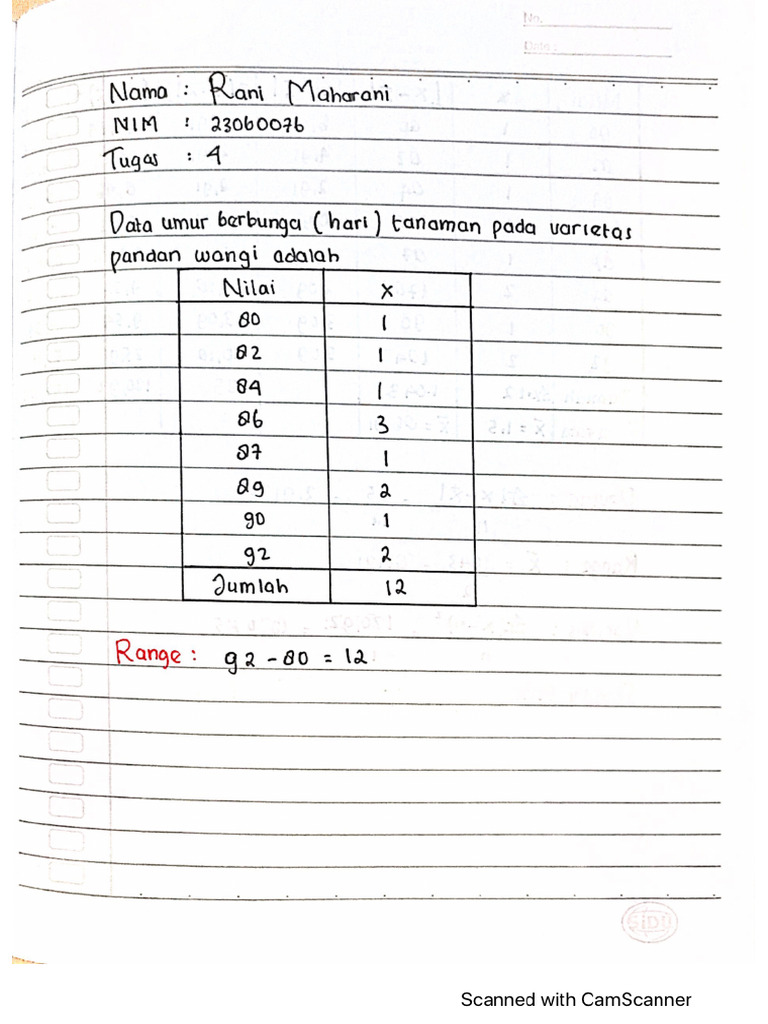 No.
Date :
Nama : Rani Maharani
NIM : 23060076
Tugas : 4
Data umur berbunga (hari) tanaman pada varietas
pandan wangi adalah
Nilai x
80 1
82 1
84 1
86 3
87 1
89 2
90 1
92 2
Jumlah 12
Range : 92 - 80 = 12
SiDU
Scanned with CamScanner